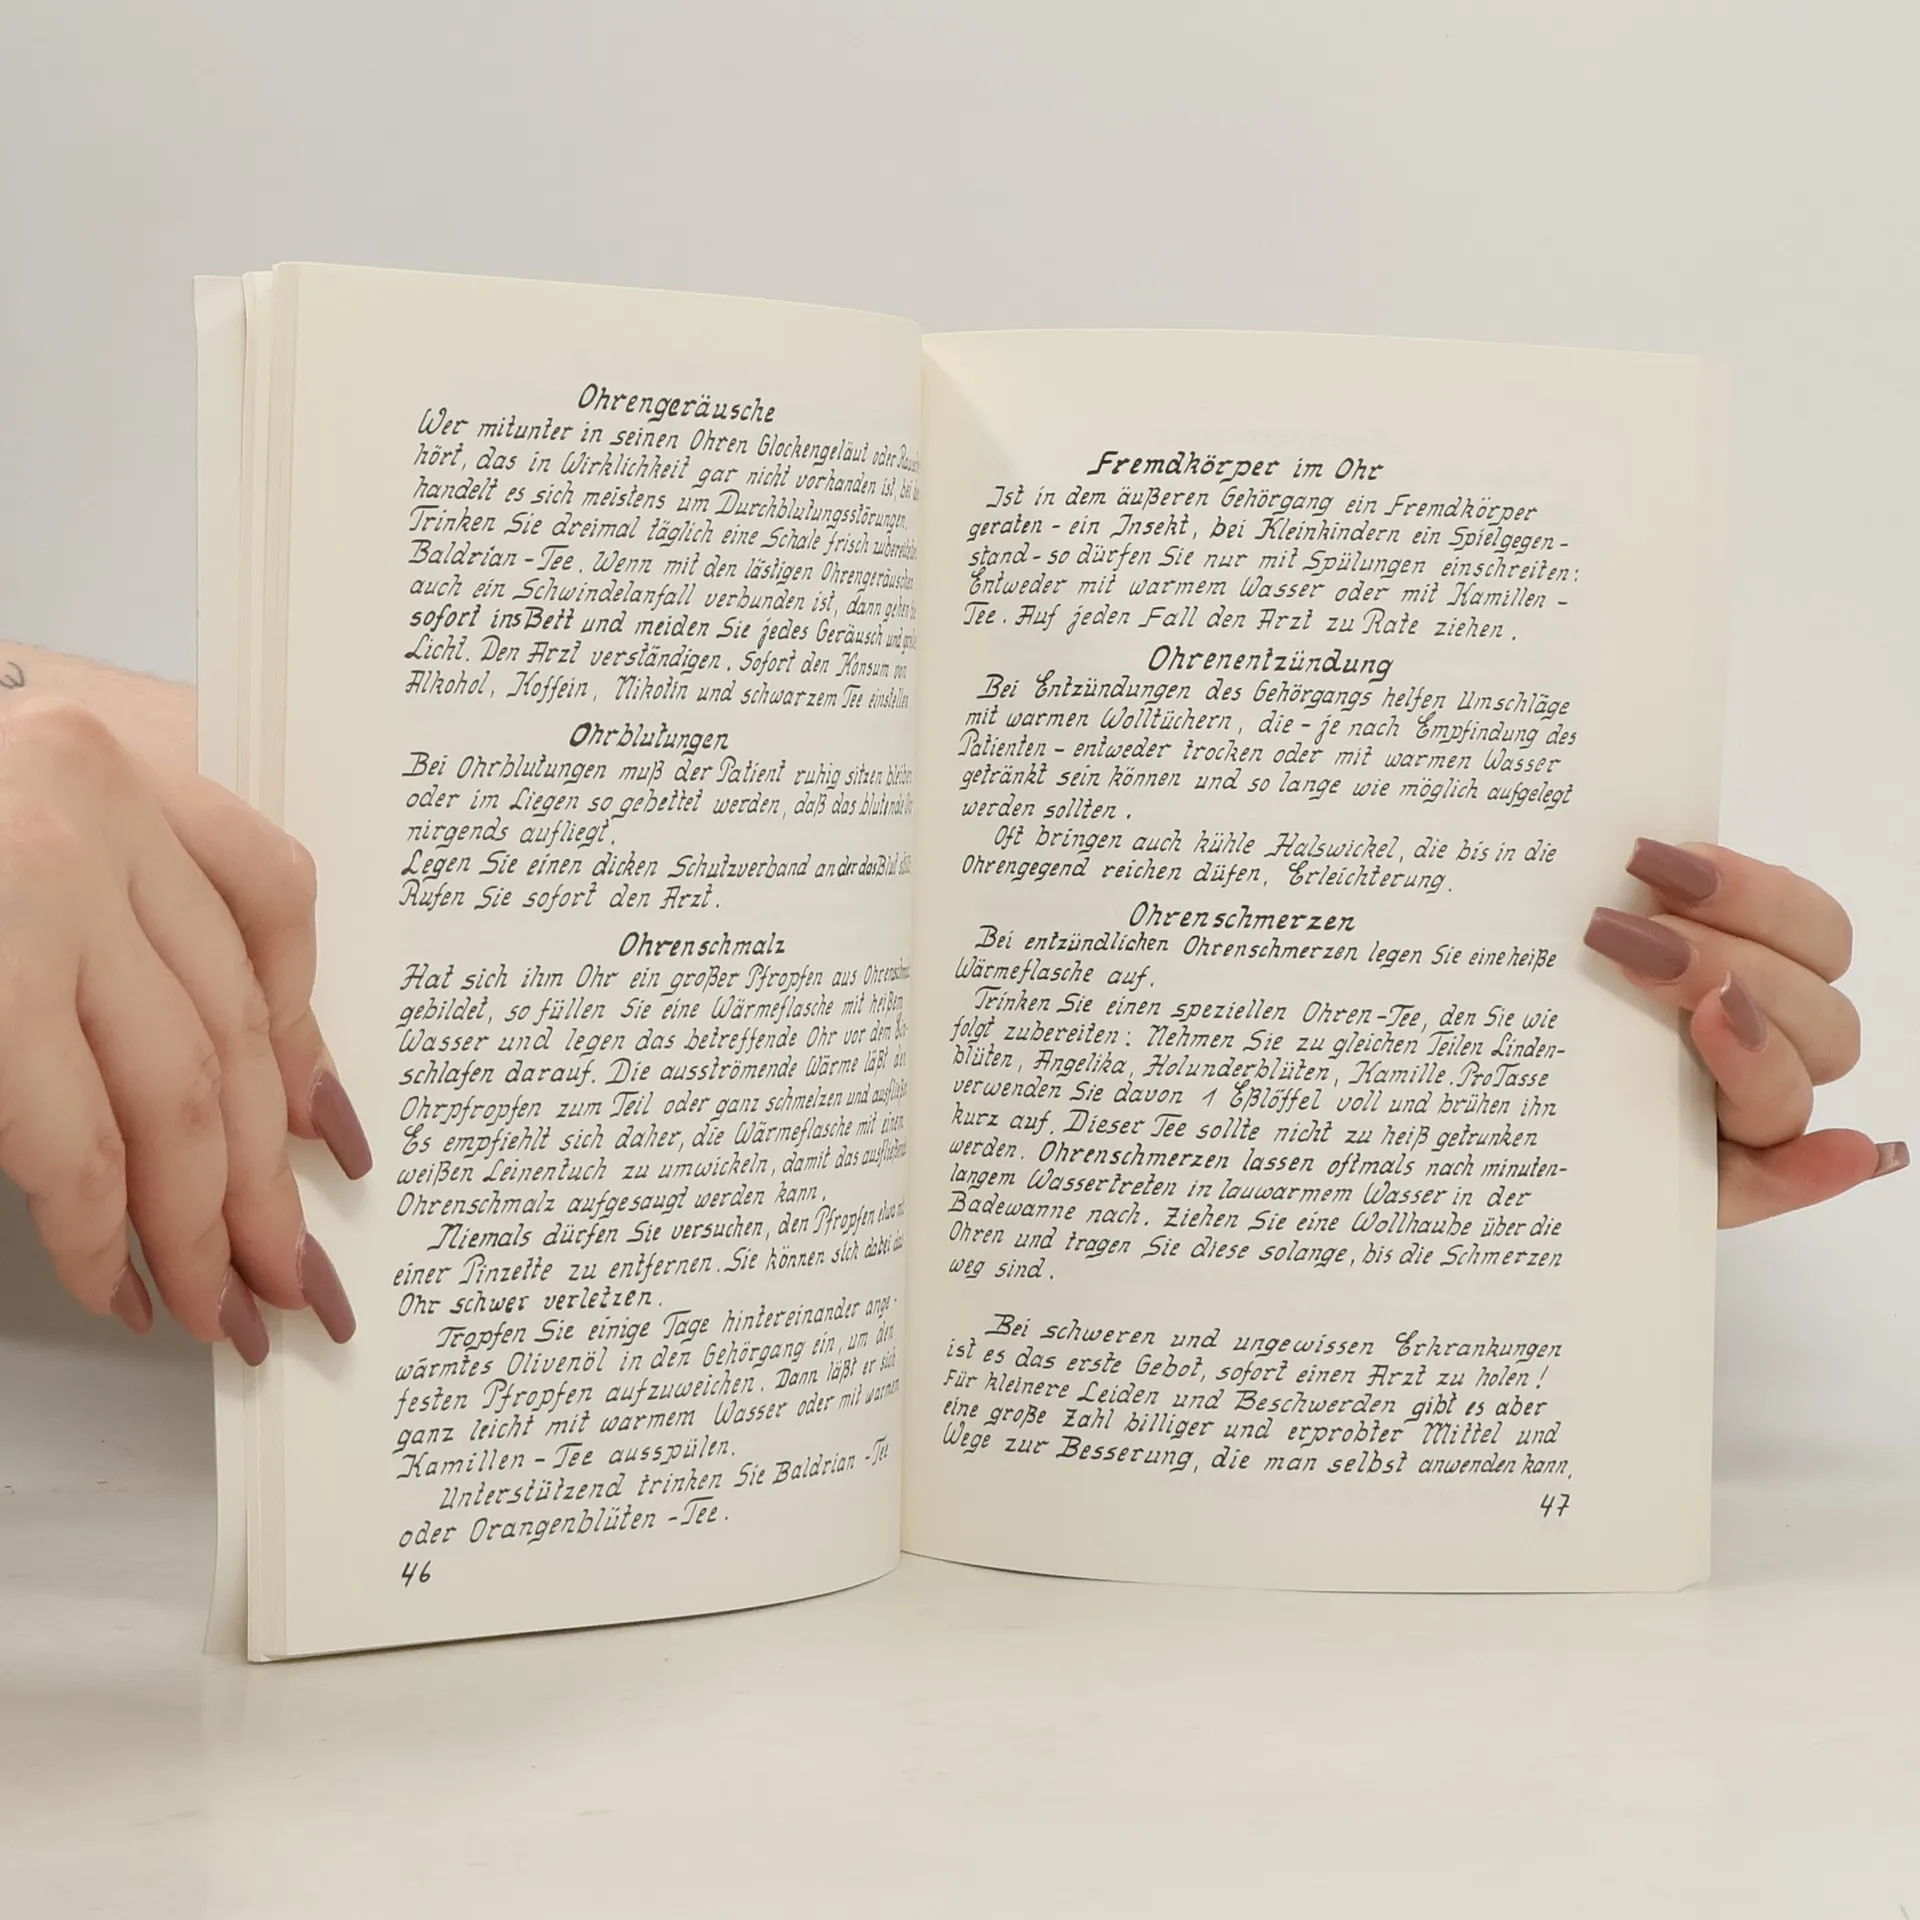 Ohrengeräusche
Wer mitunter in seinen Ohren Glockengeläut oder
hört, das in Wirklichkeit gar nicht vorhanden ist, bei
handelt es sich meistens um Durchblutungsstörungen.
Trinken Sie dreimal täglich eine Schale frisch
Baldrian-Tee. Wenn mit den lästigen Ohrengeräuschen
auch ein Schwindelanfall verbunden ist, dann gehen
sofort ins Bett und meiden Sie jedes Geräusch und
Licht. Den Arzt verständigen. Sofort den Konsum von
Alkohol, Koffein, Nikotin und schwarzem Tee einstellen
Ohrblutungen
Bei Ohrblutungen muß der Patient ruhig sitzen bleiben
oder im Liegen so gebettet werden, daß das blutende
nirgends aufliegt.
Legen Sie einen dicken Schutzverband an der das Blut
Rufen Sie sofort den Arzt.
Ohrenschmalz
Hat sich ihm Ohr ein großer Pfropfen aus
gebildet, so füllen Sie eine Wärmeflasche mit heißem
Wasser und legen das betreffende Ohr vor dem
schlafen darauf. Die ausströmende Wärme läßt den
Ohrpfropfen zum Teil oder ganz schmelzen und
Es empfiehlt sich daher, die Wärmeflasche mit einem
weißen Leinentuch zu umwickeln, damit das
Ohrenschmalz aufgesaugt werden kann.
Niemals dürfen Sie versuchen, den Pfropfen etwa mit
einer Pinzette zu entfernen. Sie können sich dabei das
Ohr schwer verletzen.
Tropfen Sie einige Tage hintereinander ange-
wärmtes Olivenöl in den Gehörgang ein, um den
festen Pfropfen aufzuweichen. Dann läßt er sich
ganz leicht mit warmem Wasser oder mit warmen
Kamillen-Tee ausspülen.
Unterstützend trinken Sie Baldrian-Tee
oder Orangenblüten-Tee.
46
Fremdkörper im Ohr
Ist in dem äußeren Gehörgang ein Fremdkörper
geraten - ein Insekt, bei Kleinkindern ein Spielgegen-
stand - so dürfen Sie nur mit Spülungen einschreiten:
Entweder mit warmem Wasser oder mit Kamillen-
Tee. Auf jeden Fall den Arzt zu Rate ziehen.
Ohrenentzündung
Bei Entzündungen des Gehörgangs helfen Umschläge
mit warmen Wolltüchern, die - je nach Empfindung des
Patienten - entweder trocken oder mit warmen Wasser
getränkt sein können und so lange wie möglich aufgelegt
werden sollten.
Oft bringen auch kühle Halswickel, die bis in die
Ohrengegend reichen düfen, Erleichterung.
Ohrenschmerzen
Bei entzündlichen Ohrenschmerzen legen Sie eine heiße
Wärmeflasche auf.
Trinken Sie einen speziellen Ohren-Tee, den Sie wie
folgt zubereiten: Nehmen Sie zu gleichen Teilen Linden-
blüten, Angelika, Holunderblüten, Kamille. Pro Tasse
verwenden Sie davon 1 Eßlöffel voll und brühen ihn
kurz auf. Dieser Tee sollte nicht zu heiß getrunken
werden. Ohrenschmerzen lassen oftmals nach minuten-
langem Wassertreten in lauwarmem Wasser in der
Badewanne nach. Ziehen Sie eine Wollhaube über die
Ohren und tragen Sie diese solange, bis die Schmerzen
weg sind.
Bei schweren und ungewissen Erkrankungen
ist es das erste Gebot, sofort einen Arzt zu holen!
Für kleinere Leiden und Beschwerden gibt es aber
eine große Zahl billiger und erprobter Mittel und
Wege zur Besserung, die man selbst anwenden kann.
47